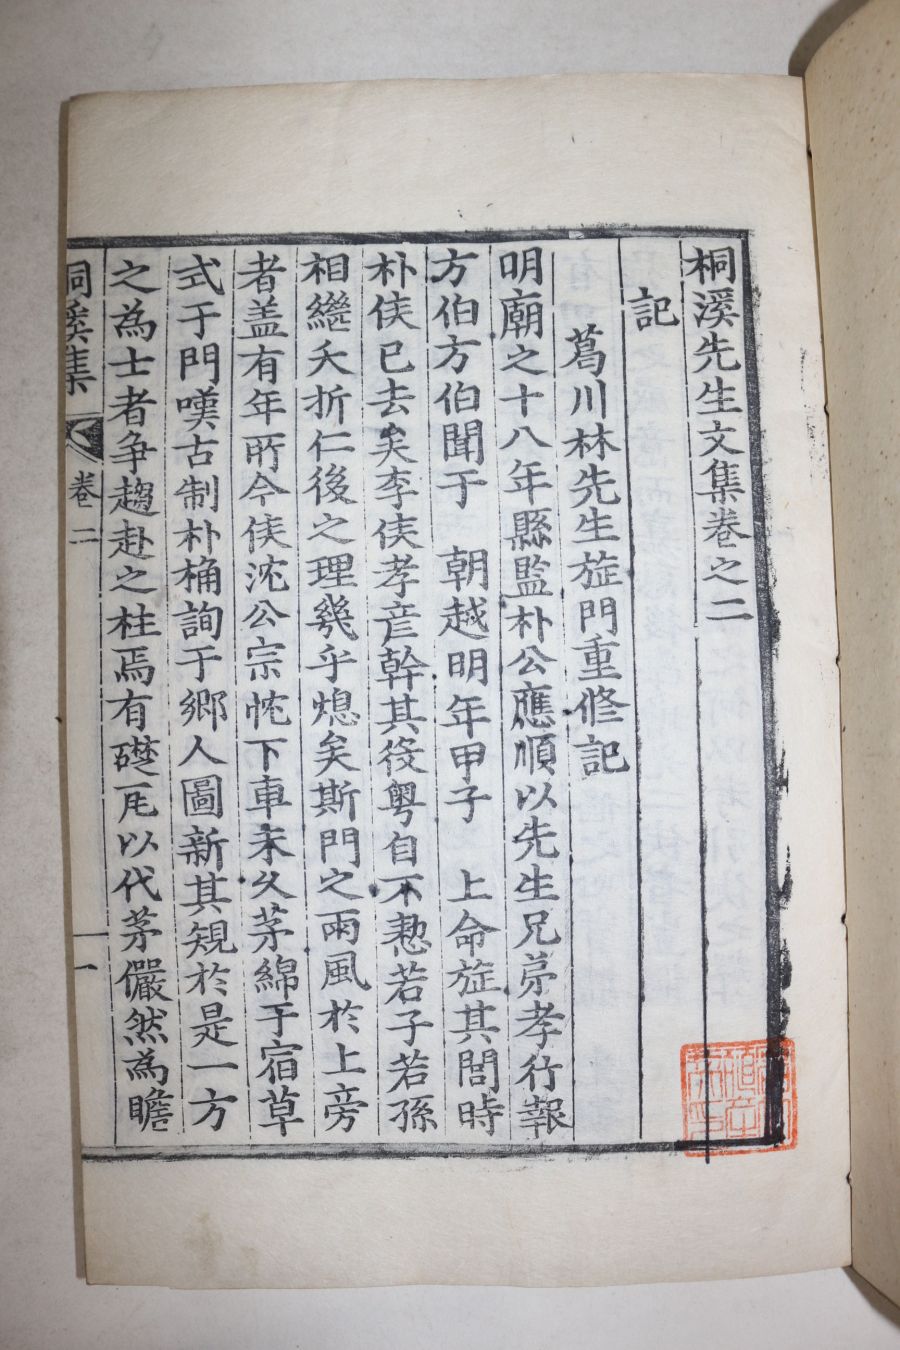 桐溪先生文集卷之二
記
葛川林先生旌門重修記
明廟之十八年縣監朴公應順以先生兄弟孝行報
方伯方伯聞于 朝越明年甲子 上命旌其閭時
朴侯已去矣李侯孝彦幹其役粤自不憖若子若孫
相繼夭折仁後之理幾乎熄矣斯門之雨風於上旁
者盖有年所今侯沈公宗忱下車未久茅綿于宿草
式于門嘆古制朴桷詢于鄉人圖新其䂓於是一方
之為士者争趨赴之柱焉有礎瓦以代茅儼然為瞻
桐溪集
卷二
一